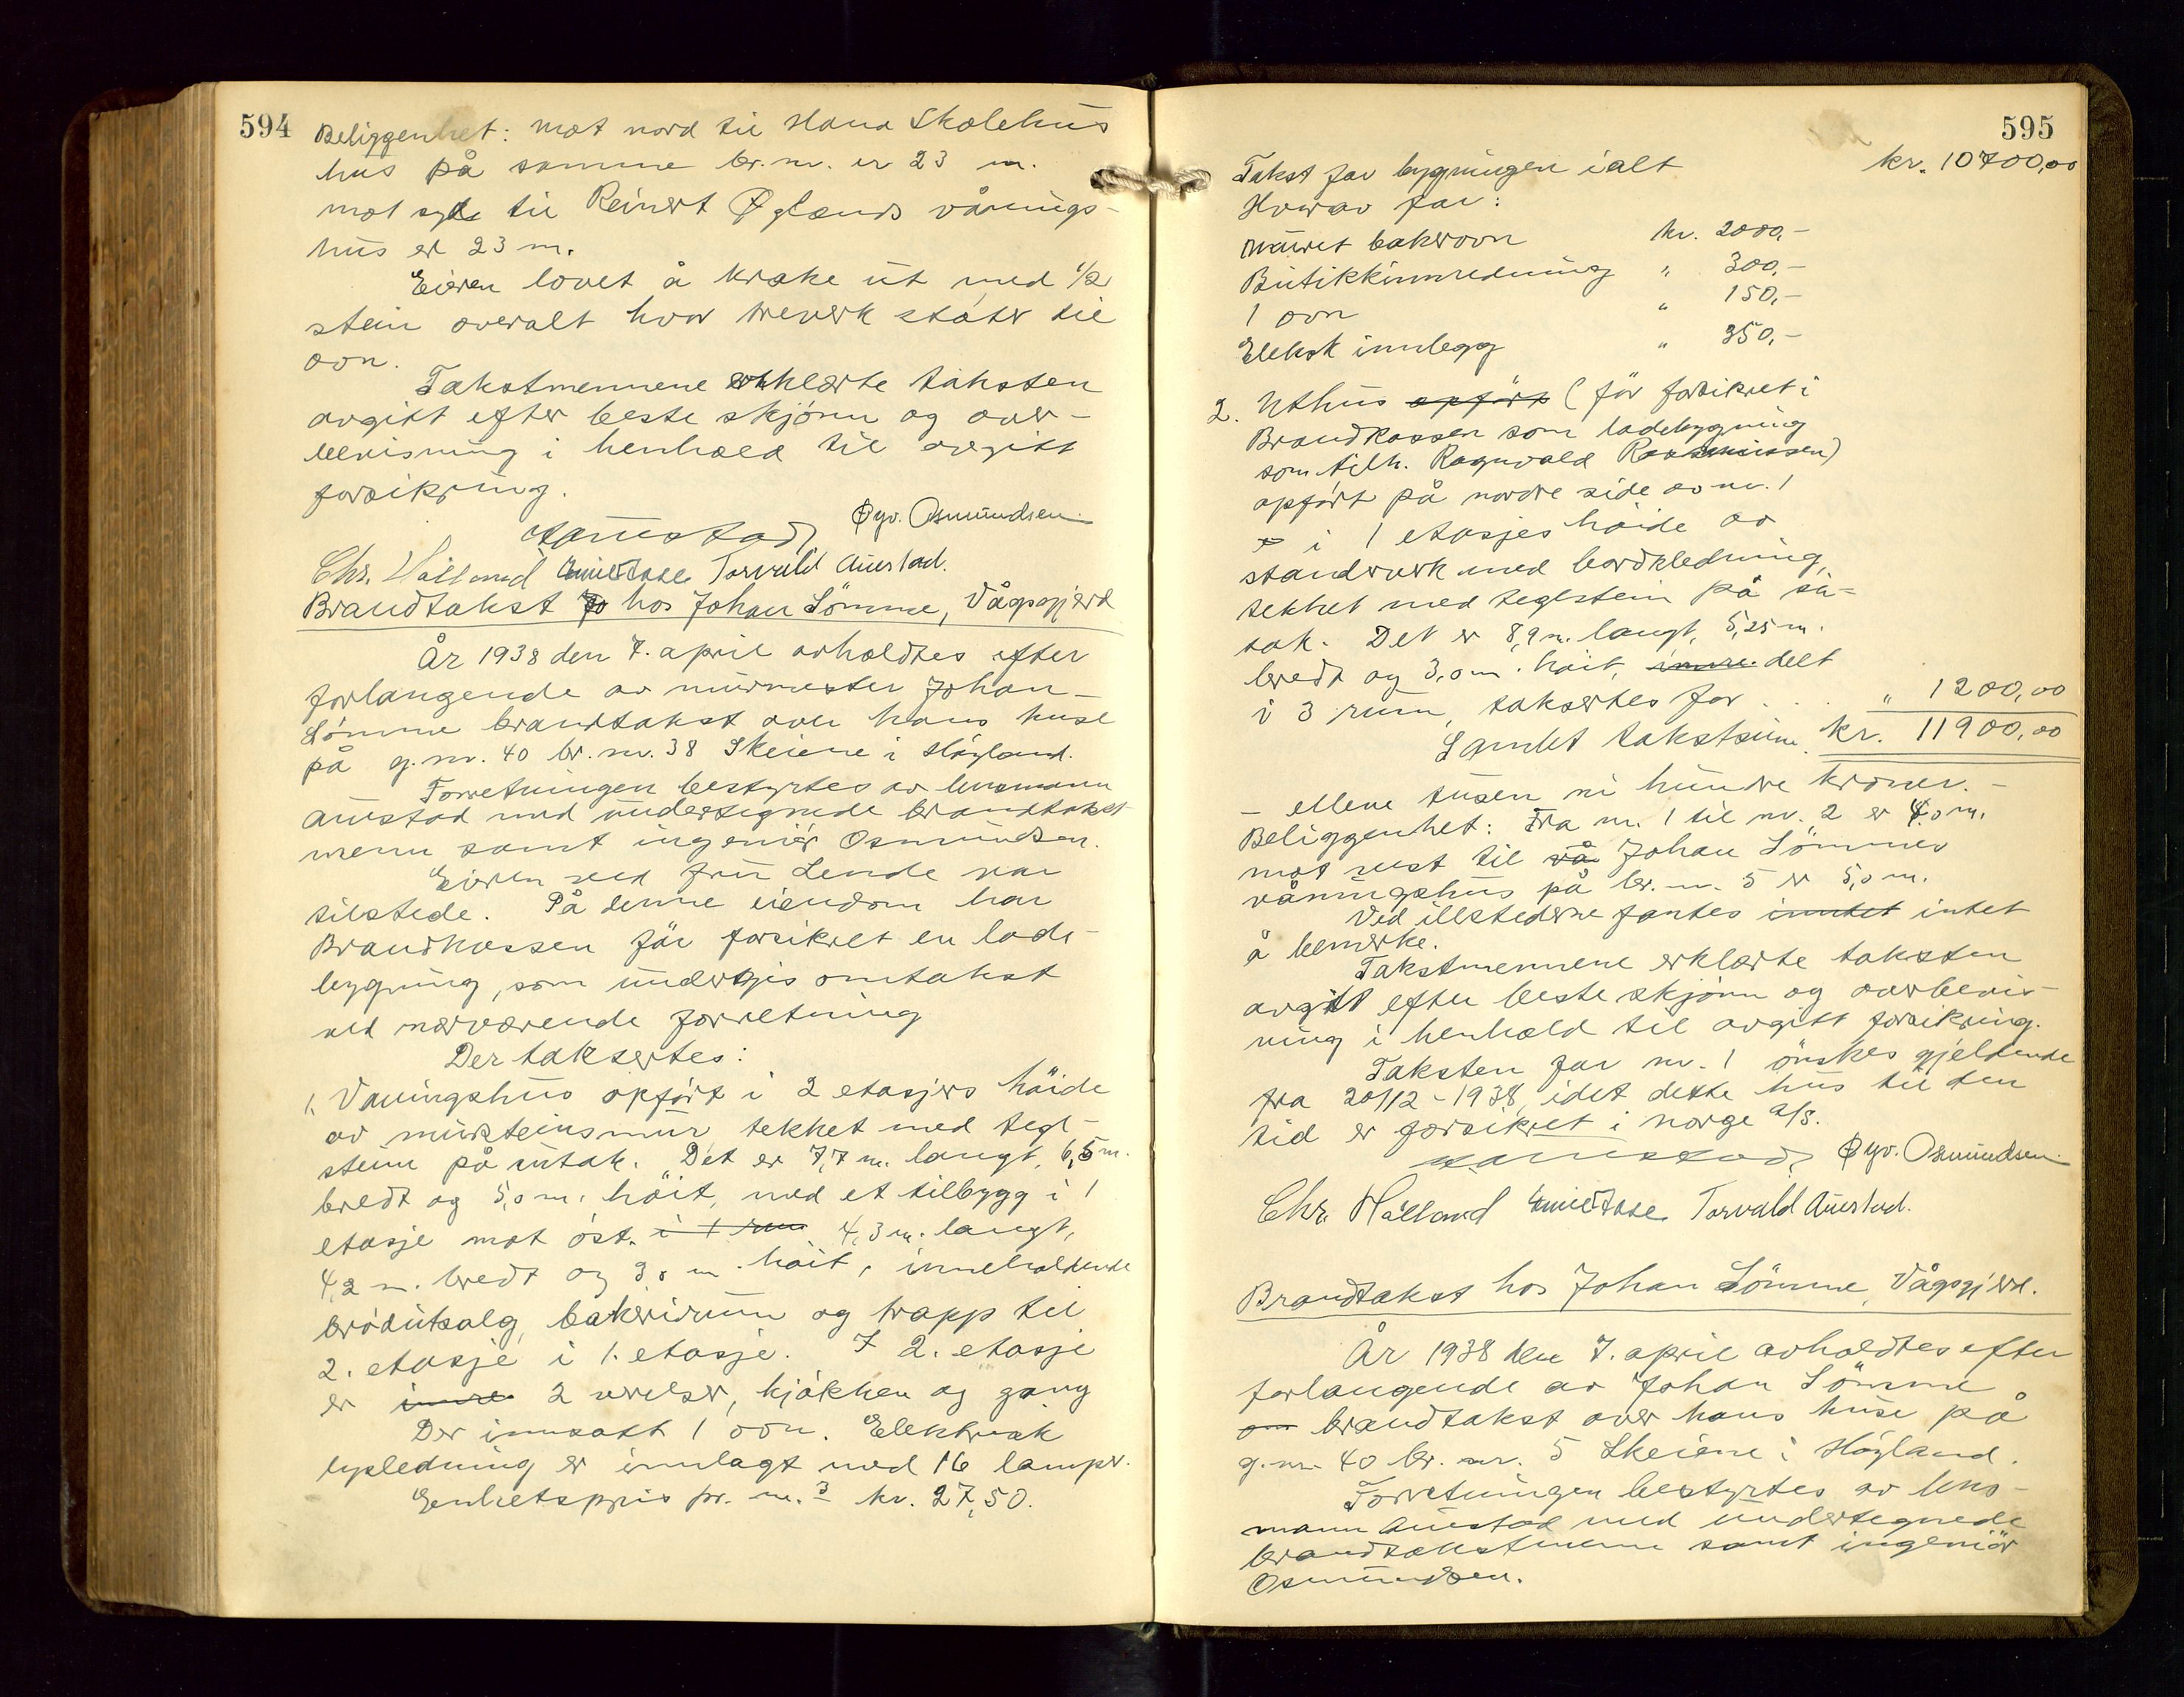 594
Beliggenhet: mot nord til Hana Skolehus
hus på samme br. nr. er 23 m.
mot syd til Reinert Øglænds vånings-
hus er 23 m.
Eieren lovet å krake ut med 1/2
stein overalt hvor treverk støter til
ovn.
Takstmennene erklærte taksten
avgitt efter beste skjönn og over-
bevisning i henhold til avgitt
forsikring.
Aanestad Øyv. Osmundsen
Chr. Hålland Torvald Auestad.
Brandtakst hos Johan Sömme, Vågsgjerd
År 1938 den 7. april avholdtes efter
forlangende av murmester Johan
Sömme brandtakst over hans huse
på g. nr. 40 br. nr. 38 Skeiene i Høyland.
Forretningen bestyrtes av lensmann
Auestad med undertegnede brandtakst-
menn samt ingeniör Osmundsen.
Eieren ved fru Lende var
tilstede. På denne eiendom har
Brandkassen för forsikret en lade-
bygning, som undergis omtakst
ved nærværende forretning
Der taksertes:
1. Våningshus opfört i 2 etasjers höide
av mursteinsmur tekket med tegl-
stein på sutak. Det er 7,7 m. langt, 6,5 m.
bredt og 5,0 m. höit, med et tilbygg i 1
etasje mot öst. i 1 rum 4,3 m. langt,
4,2 m. bredt og 3,0 m. höit, inneholdende
brödutsalg, bakerirum og trapp til
2. etasje i 1. etasje. I 2. etasje
er innre 2 værelser, kjökken og gang
Der innsatt 1 ovn. Elektrisk
lysledning er innlagt med 16 lamper.
Enhetspris pr. m.3 kr. 27,50.
595
Takst for bygningen ialt kr. 10700,00
Hvorav for:
muret bakerovn kr. 2000,-
Butikkinnredning " 300,-
1 ovn " 150,-
Elektsk innlegg " 350,-
2. Uthus opfört (för forsikret i
Brandkassen som ladebygning
som tilh. Ragnvald Rasmussen)
opfört på nordre side av nr. 1
i 1 etasjes höide av
standverk med bordkledning,
tekket med teglstein på su-
tak. Det er 8,9 m. langt, 5,25 m.
bredt og 3,0 m. höit, innre delt
i 3 rum, taksertes for . . . " 1200,00
Samlet takstsum. kr. 11900,00
- elleve tusen ni hundre kroner. -
Beliggenhet: Fra nr. 1 til nr. 2 er 4,0 m.
mot vest til vå Johan Sömmes
våningshus på br. nr. 5 er 5,0 m.
Ved ildstederne fantes inntet intet
å bemerke.
Takstmennene erklærte taksten
avgitt efter beste skjönn og overbevis-
ning i henhold til avgitt forsikring.
Taksten for nr. 1 önskes gjeldende
fra 20/12-1938, idet dette hus til den
tid er forsikret i Norge a/s.
Aanestad Øyv. Osmundsen
Chr. Hålland Torvald Auestad.
Brandtakst hos Johan Sömme, Vågsgjerd.
År 1938 den 7. april avholdtes efter
forlangende av Johan Sömme
om brandtakst over hans huse på
g. nr. 40 br. nr. 5 Skeiene i Høyland.
Forretningen bestyrtes av lens-
mann Auestad med undertegnede
brandtakstmenn samt ingeniör
Osmundsen.